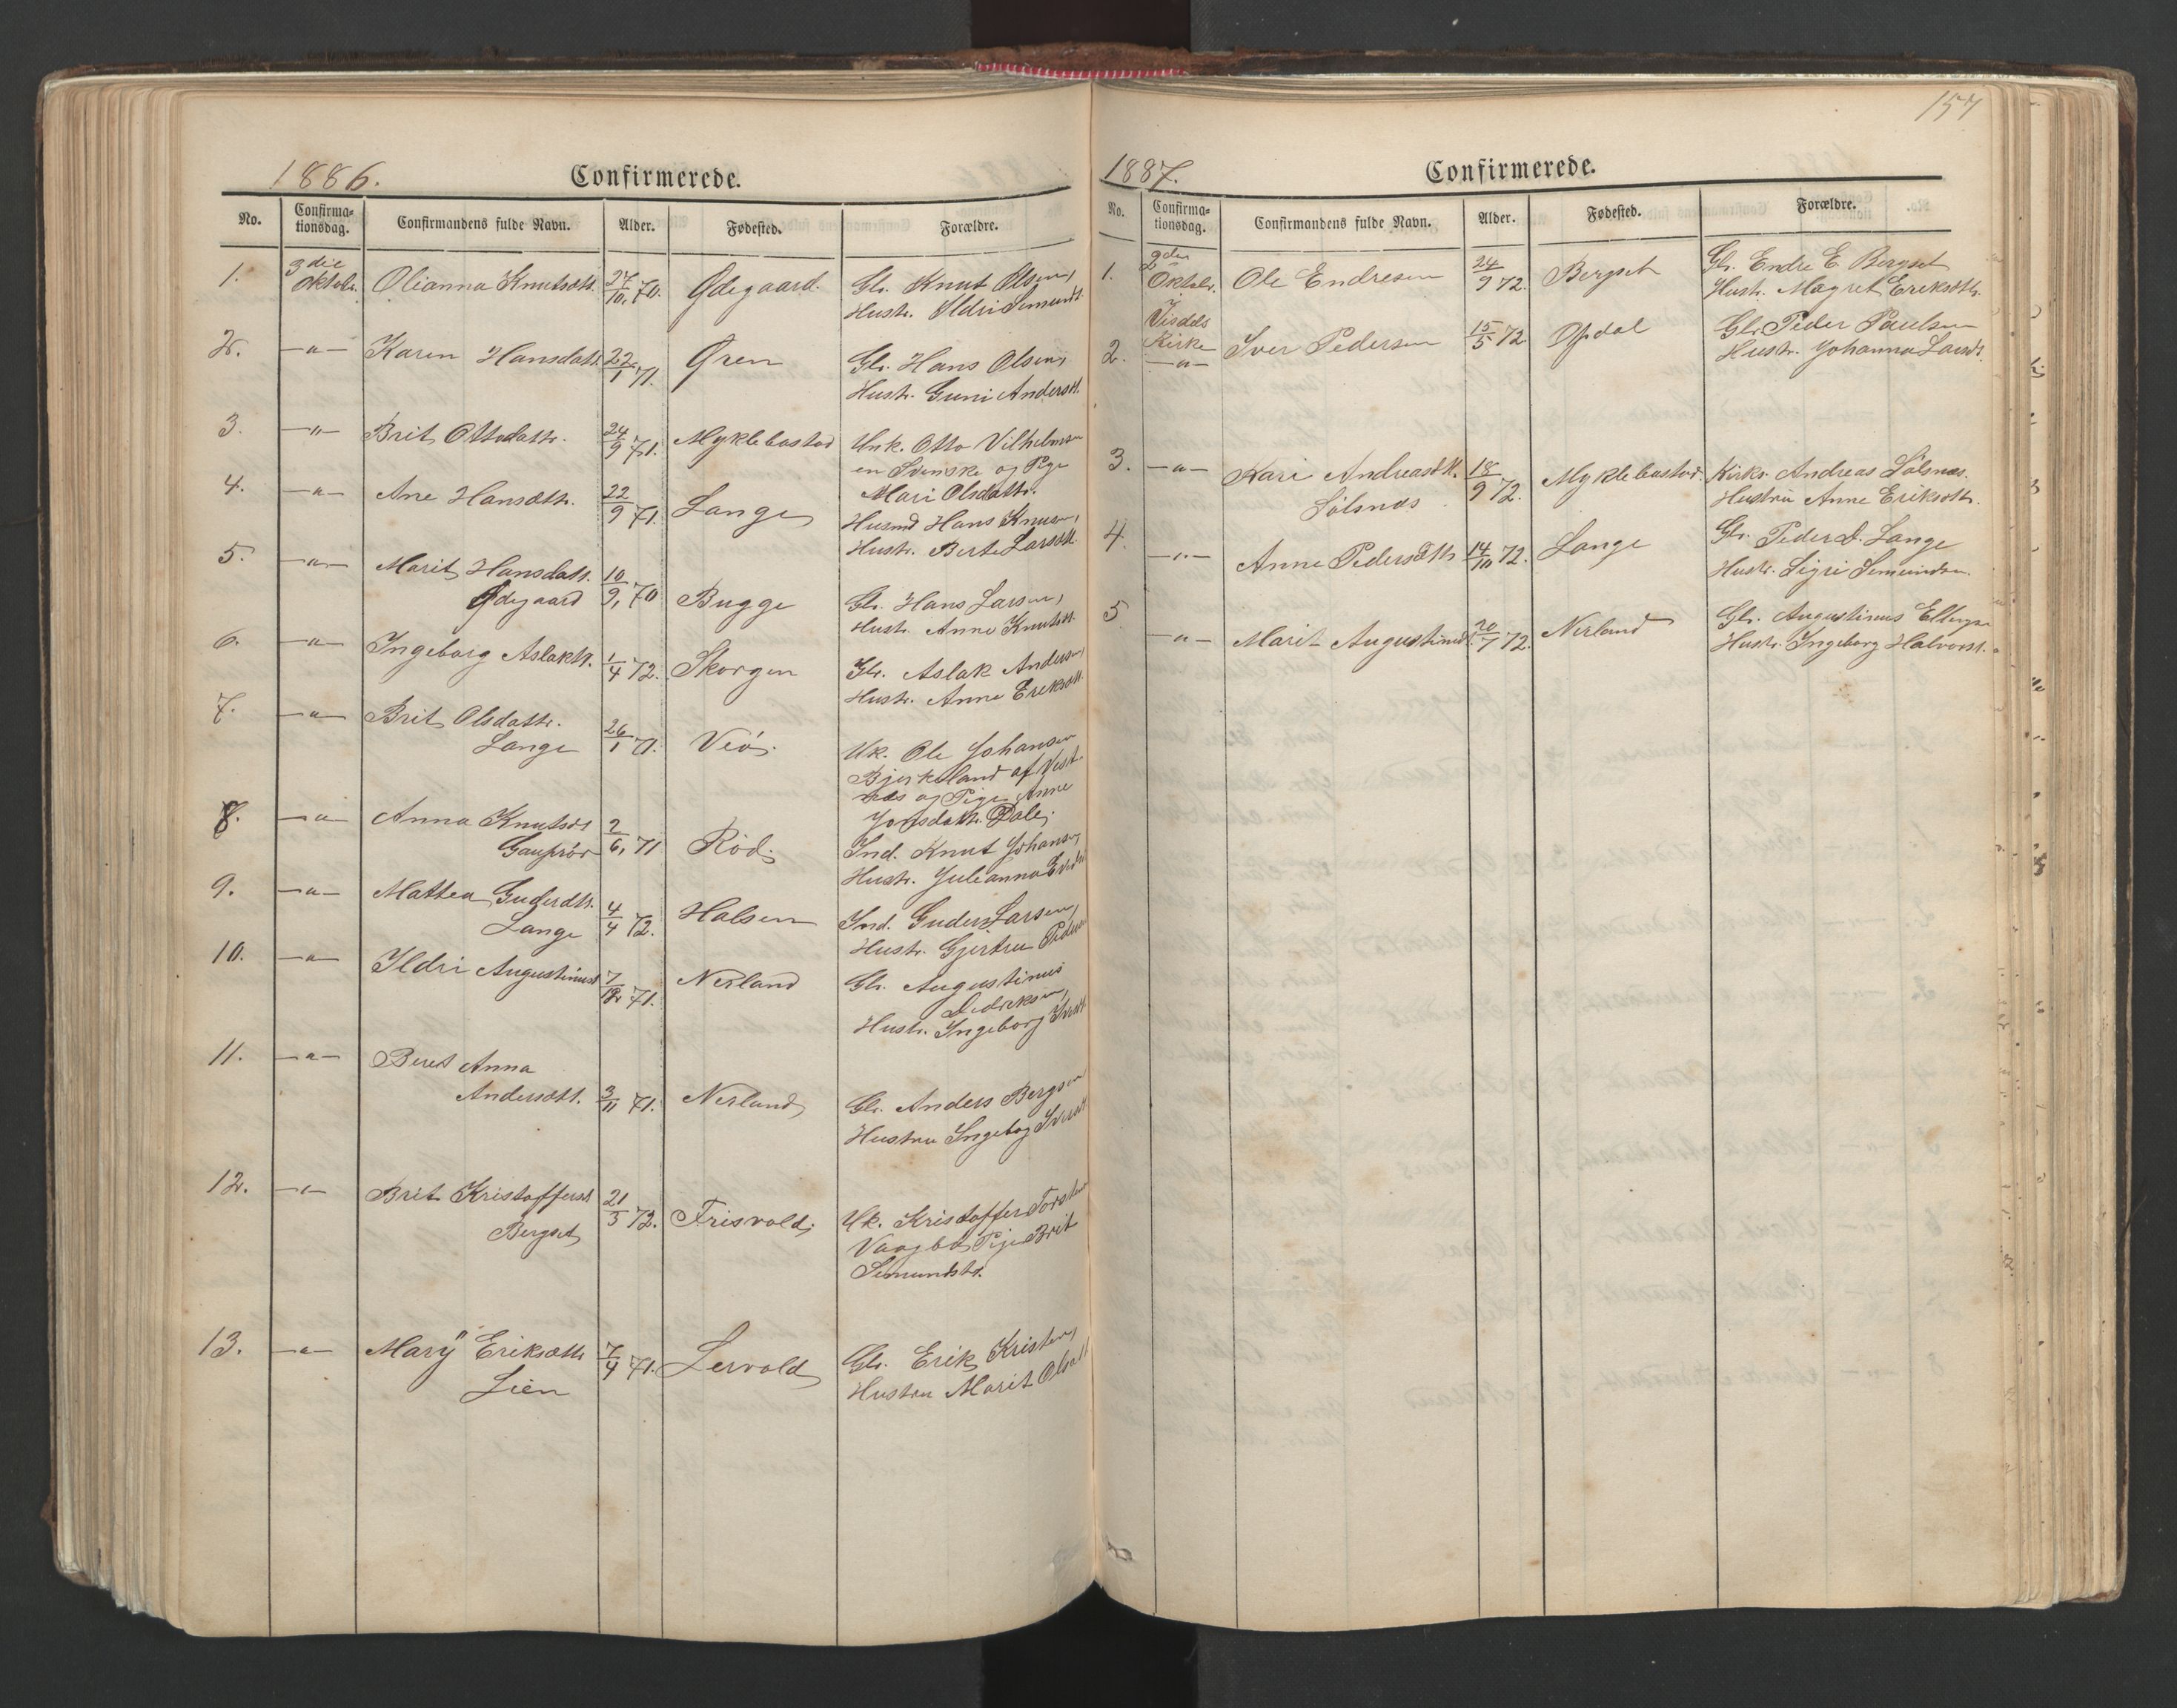 1886. Confirmerede.
No. Confirma-tionsdag. Confirmandens fulde Navn. Alder. Fødested. Forældre.
1. 3die Oktobr. Olianna Knutsdtr. 27/10, 70. Ødegaard. Gbr. Knut Olsen,
Hustr. Ildri Semundsd.
2. —"— Karen Hansdatr. 22/1 71. Øren Gbr. Hans Olsen,
Hustr. Guni Andersdt.
3. —"— Brit Ottodattr. 24/9 71. Myklebostad Unk. Otto Vilhelmsen
en Svenske og Pige
Mari Olsdattr.
4. —"— Ane Hansdttr. 22/9 71. Lange Husmd Hans Knusen,
Hustr. Berte Larsdtt.
5. —"— Marit Hansdatr. 10/9, 70 Bugge Gbr. Hans Larsen,
Ødegaard Hustr. Anne Knutsdt.
6. —"— Ingeborg Aslakdtr. 1/4 72. Skorgen Gbr. Aslak Andersen,
Hustr. Anne Ereksdtt.
7. —"— Brit Olsdattr. 26/1 71. Veö. Uk. Ole Johansen
Lange Bjerkeland af Vest-
næs og Pige Anne
Jonsdattr. Dale.
8. —"— Anna Knutsdr 2/6, 71 Röd. Ind. Knut Johansen,
Gauprör Hustr. Julianna
9. —"— Mattea Guderdtr. 4/4 72. Halsen Ind. Guder Larsen,
Lange Hustr. Gjertru
10. —"— Ildri Augustinusd 7/12 71. Nerland Gbr. Augustinus
Didreksen,
Hustr. Ingeborg
11. —"— Beret Anna
Andersdtt. 3/11 71. Nerland Gbr. Anders Bergsen
Hustru Ingebog
12. —"— Brit Kristoffersd 21/3 72. Frisvold. Uk. Kristoffer
Bergset Vaagbø Pige Brit
Semundstr.
13. —"— Mary Eriksdtt. 7/4 71. Lervold Gbr. Erik Kristen,
Lien Hustru Marit Olsdtt
157
1887. Confirmerede.
No. Confirma-tionsdag. Confirmandens fulde Navn. Alder. Fødested. Forældre.
1. 2den Oktobr. Ole Endresen 24/9 72. Bergset Gbr. Endre E. Bergset
Hustr. Magret Ereksdtr.
Visdals Kirke
2. —"— Iver Pedersen 15/5 72. Opdal Gbr. Peder Paulsen
Hustr. Johanna Larsd.
3. —"— Kari Andreasdtt. 18/9 72. Myklebostad. Kirks. Andreas Sölsnæs.
Sölsnæs Hustru Anne Eriksdtr.
4. —"— Anne Pedersdttr 14/10 72. Lange Gbr. Peder D. Lange
Hustr. Sigri
5 —"— Marit Augustinusd. 20/7 72. Nerland Gbr. Augustinus
Hustr. Ingeborg Halvorsd.